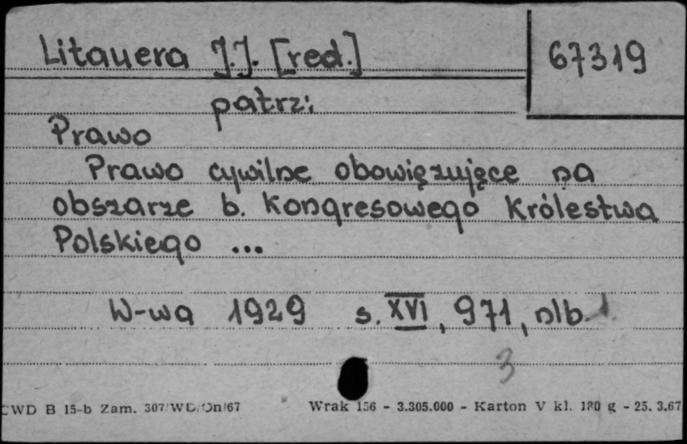 Litauera J.J. [red.]
67319
patrz:
Prawo
Prawo cywilne obowięzujęce na
obszarze b. Kongresowego Królestwa
Polskiego ...
W-wa 1929 s. XVI, 971, nlb. 1
3
CWD B 15-b Zam. 307/WD/On/67 Wrak 156 - 3.305.000 - Karton V kl. 180 g - 25. 3.67